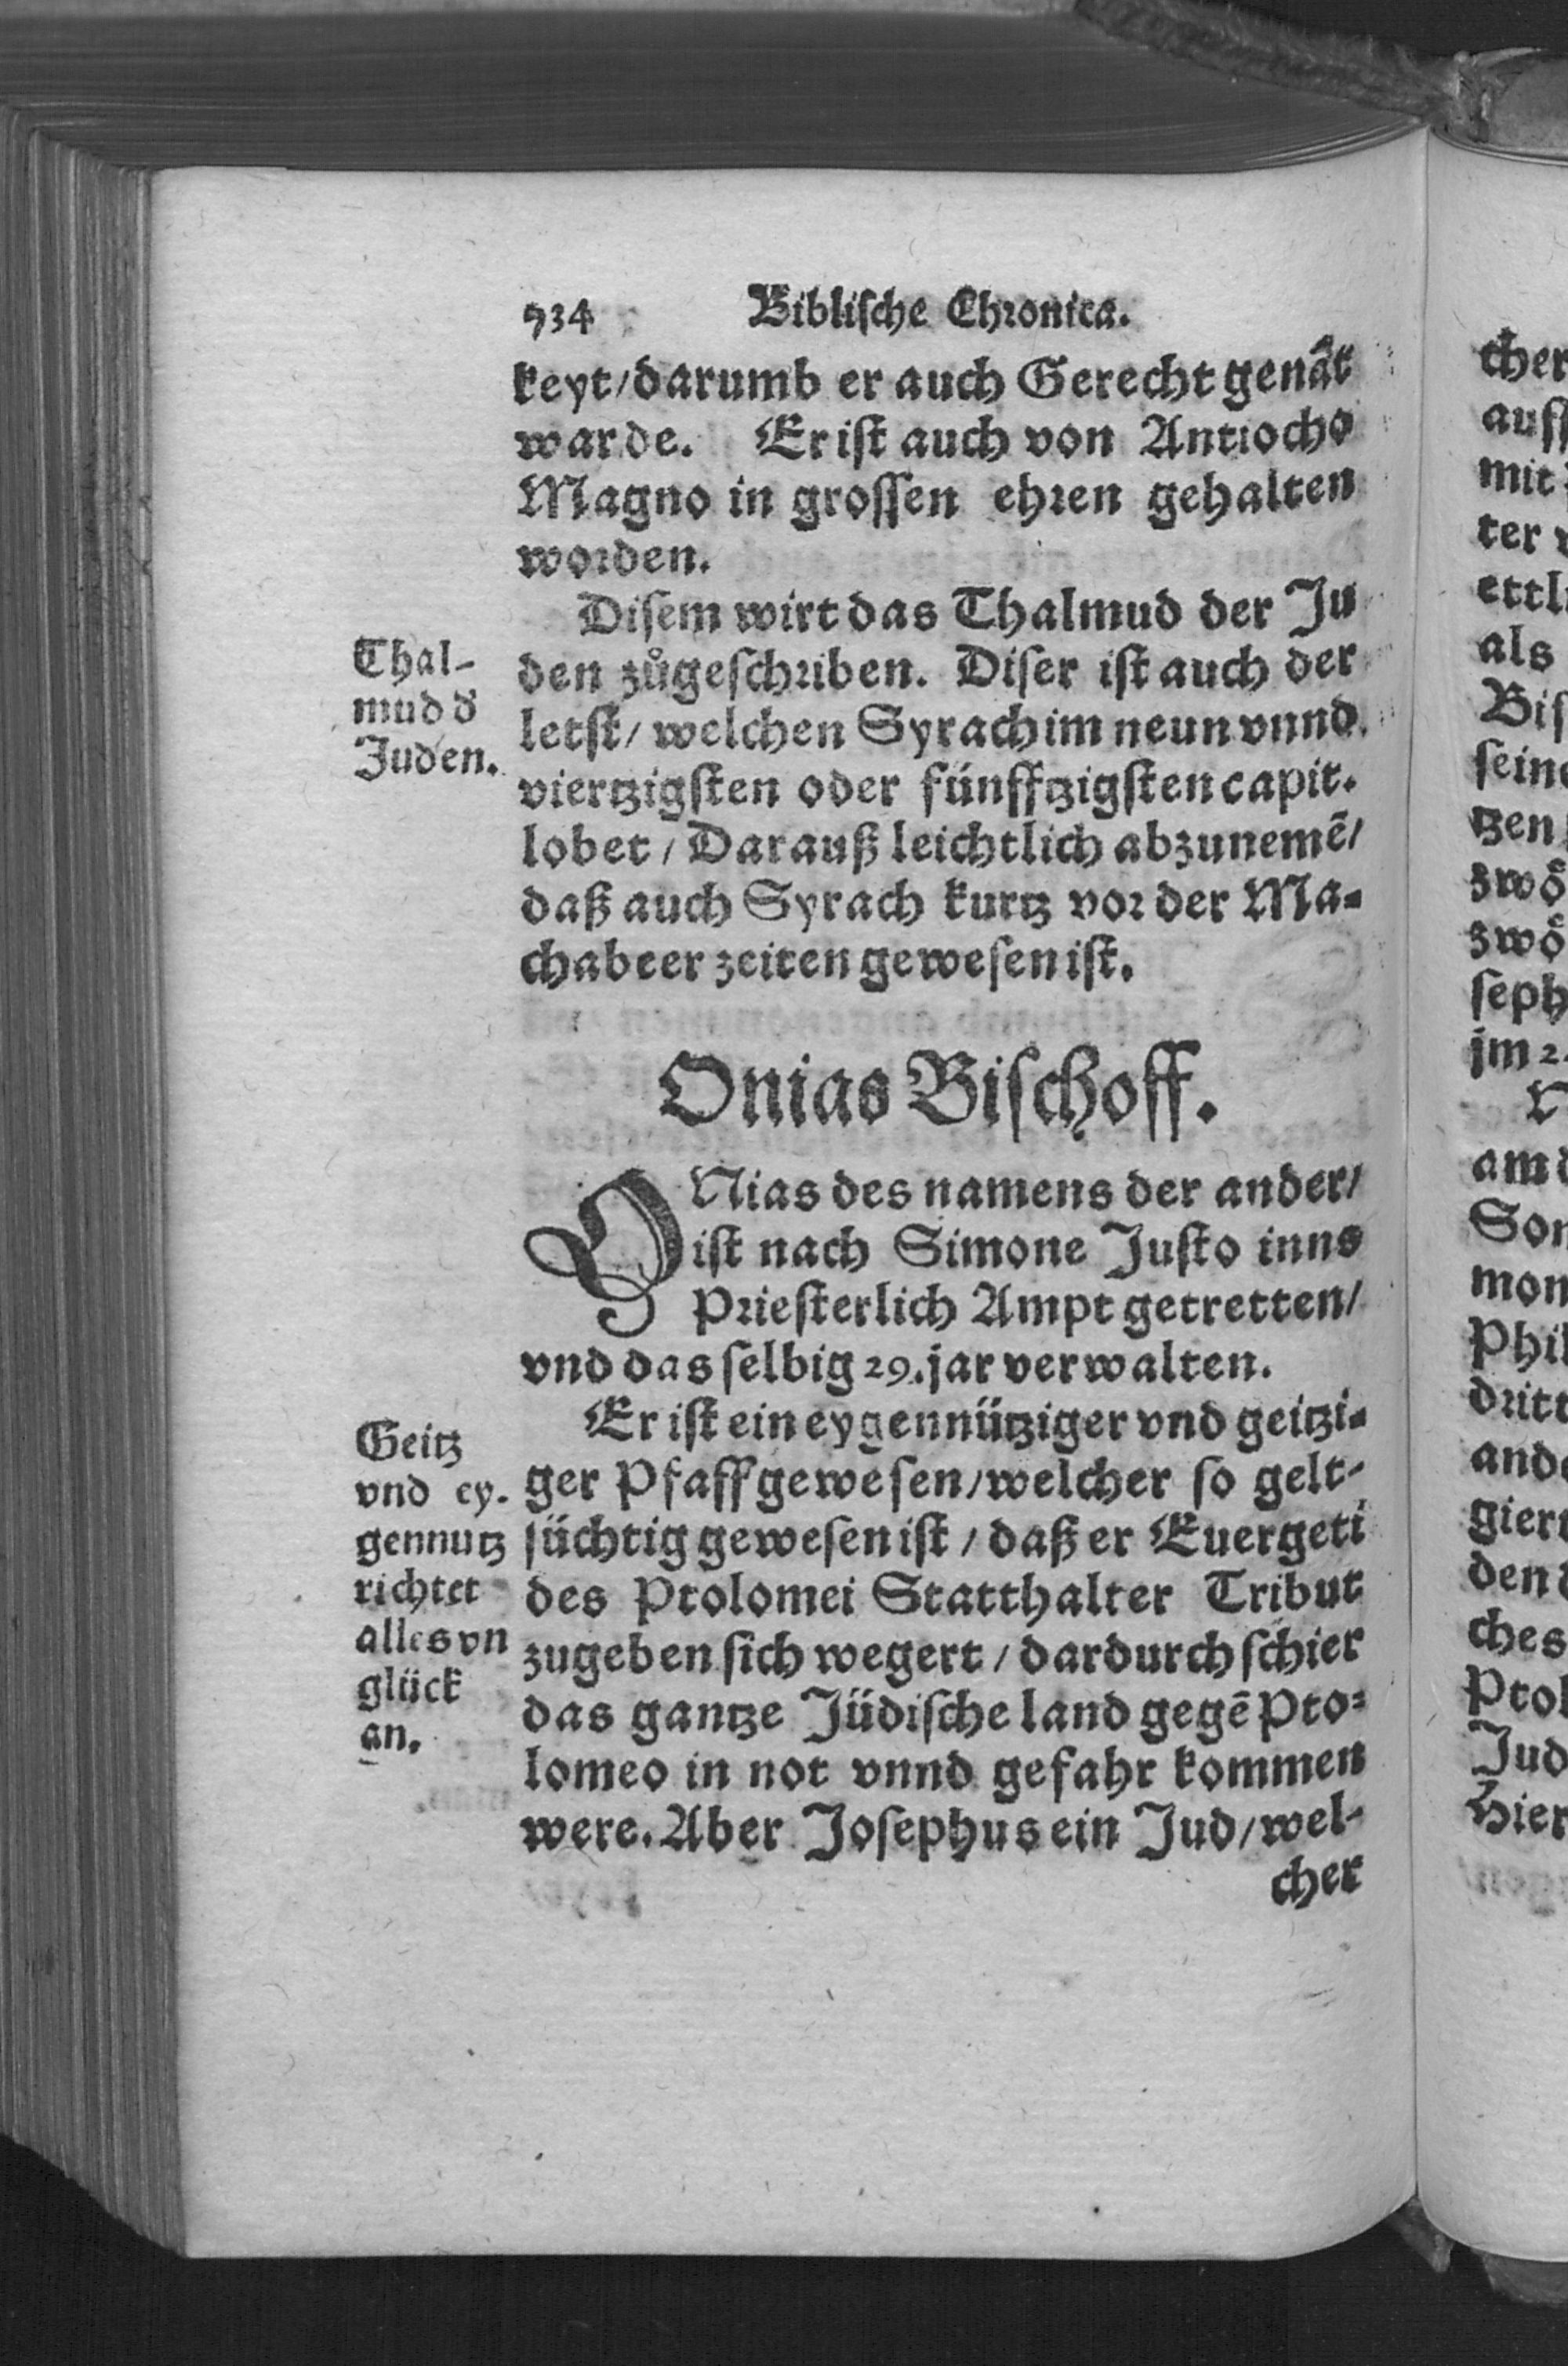 534 Biblische Chronica.
keyt/darumb er auch Gerecht genãt
warde. Er ist auch von Antiocho
Magno in grossen ehren gehalten
worden.
Disem wirt das Thalmud der Ju
den zůgeschriben. Diser ist auch der
letst/ welchen Syrach im neun vnnd
viertzigsten oder fünfftzigsten capit.
lobet / Darauß leichtlich abzunemẽ/
daß auch Syrach kurtz vor der Ma-
chabeer zeiten gewesen ist.
Thal-
mud d
Juden.
Onias Bischoff.
ONias des namens der ander/
ist nach Simone Justo inns
Priesterlich Ampt getretten/
vnd das selbig 29. jar verwalten.
Er ist ein eygennütziger vnd geitzi-
ger Pfaff gewesen/welcher so gelt-
süchtig gewesen ist / daß er Euergeti
des Ptolomei Statthalter Tribut
zugeben sich wegert / dardurch schier
das gantze Jüdische land gegẽ Pto-
lomeo in not vnnd gefahr kommen
were. Aber Josephus ein Jud/wel-
cher
Geitz
vnd ey-
gennutz
richtet
alles vn
glück
an.
cher
auff
mit
ter
ettli
als
Bis
seine
tzen
zwö
zwö
seph
jm 2
am
Son
mon
Phil
dritt
ande
giert
den
ches
Ptol
Jud
Hier